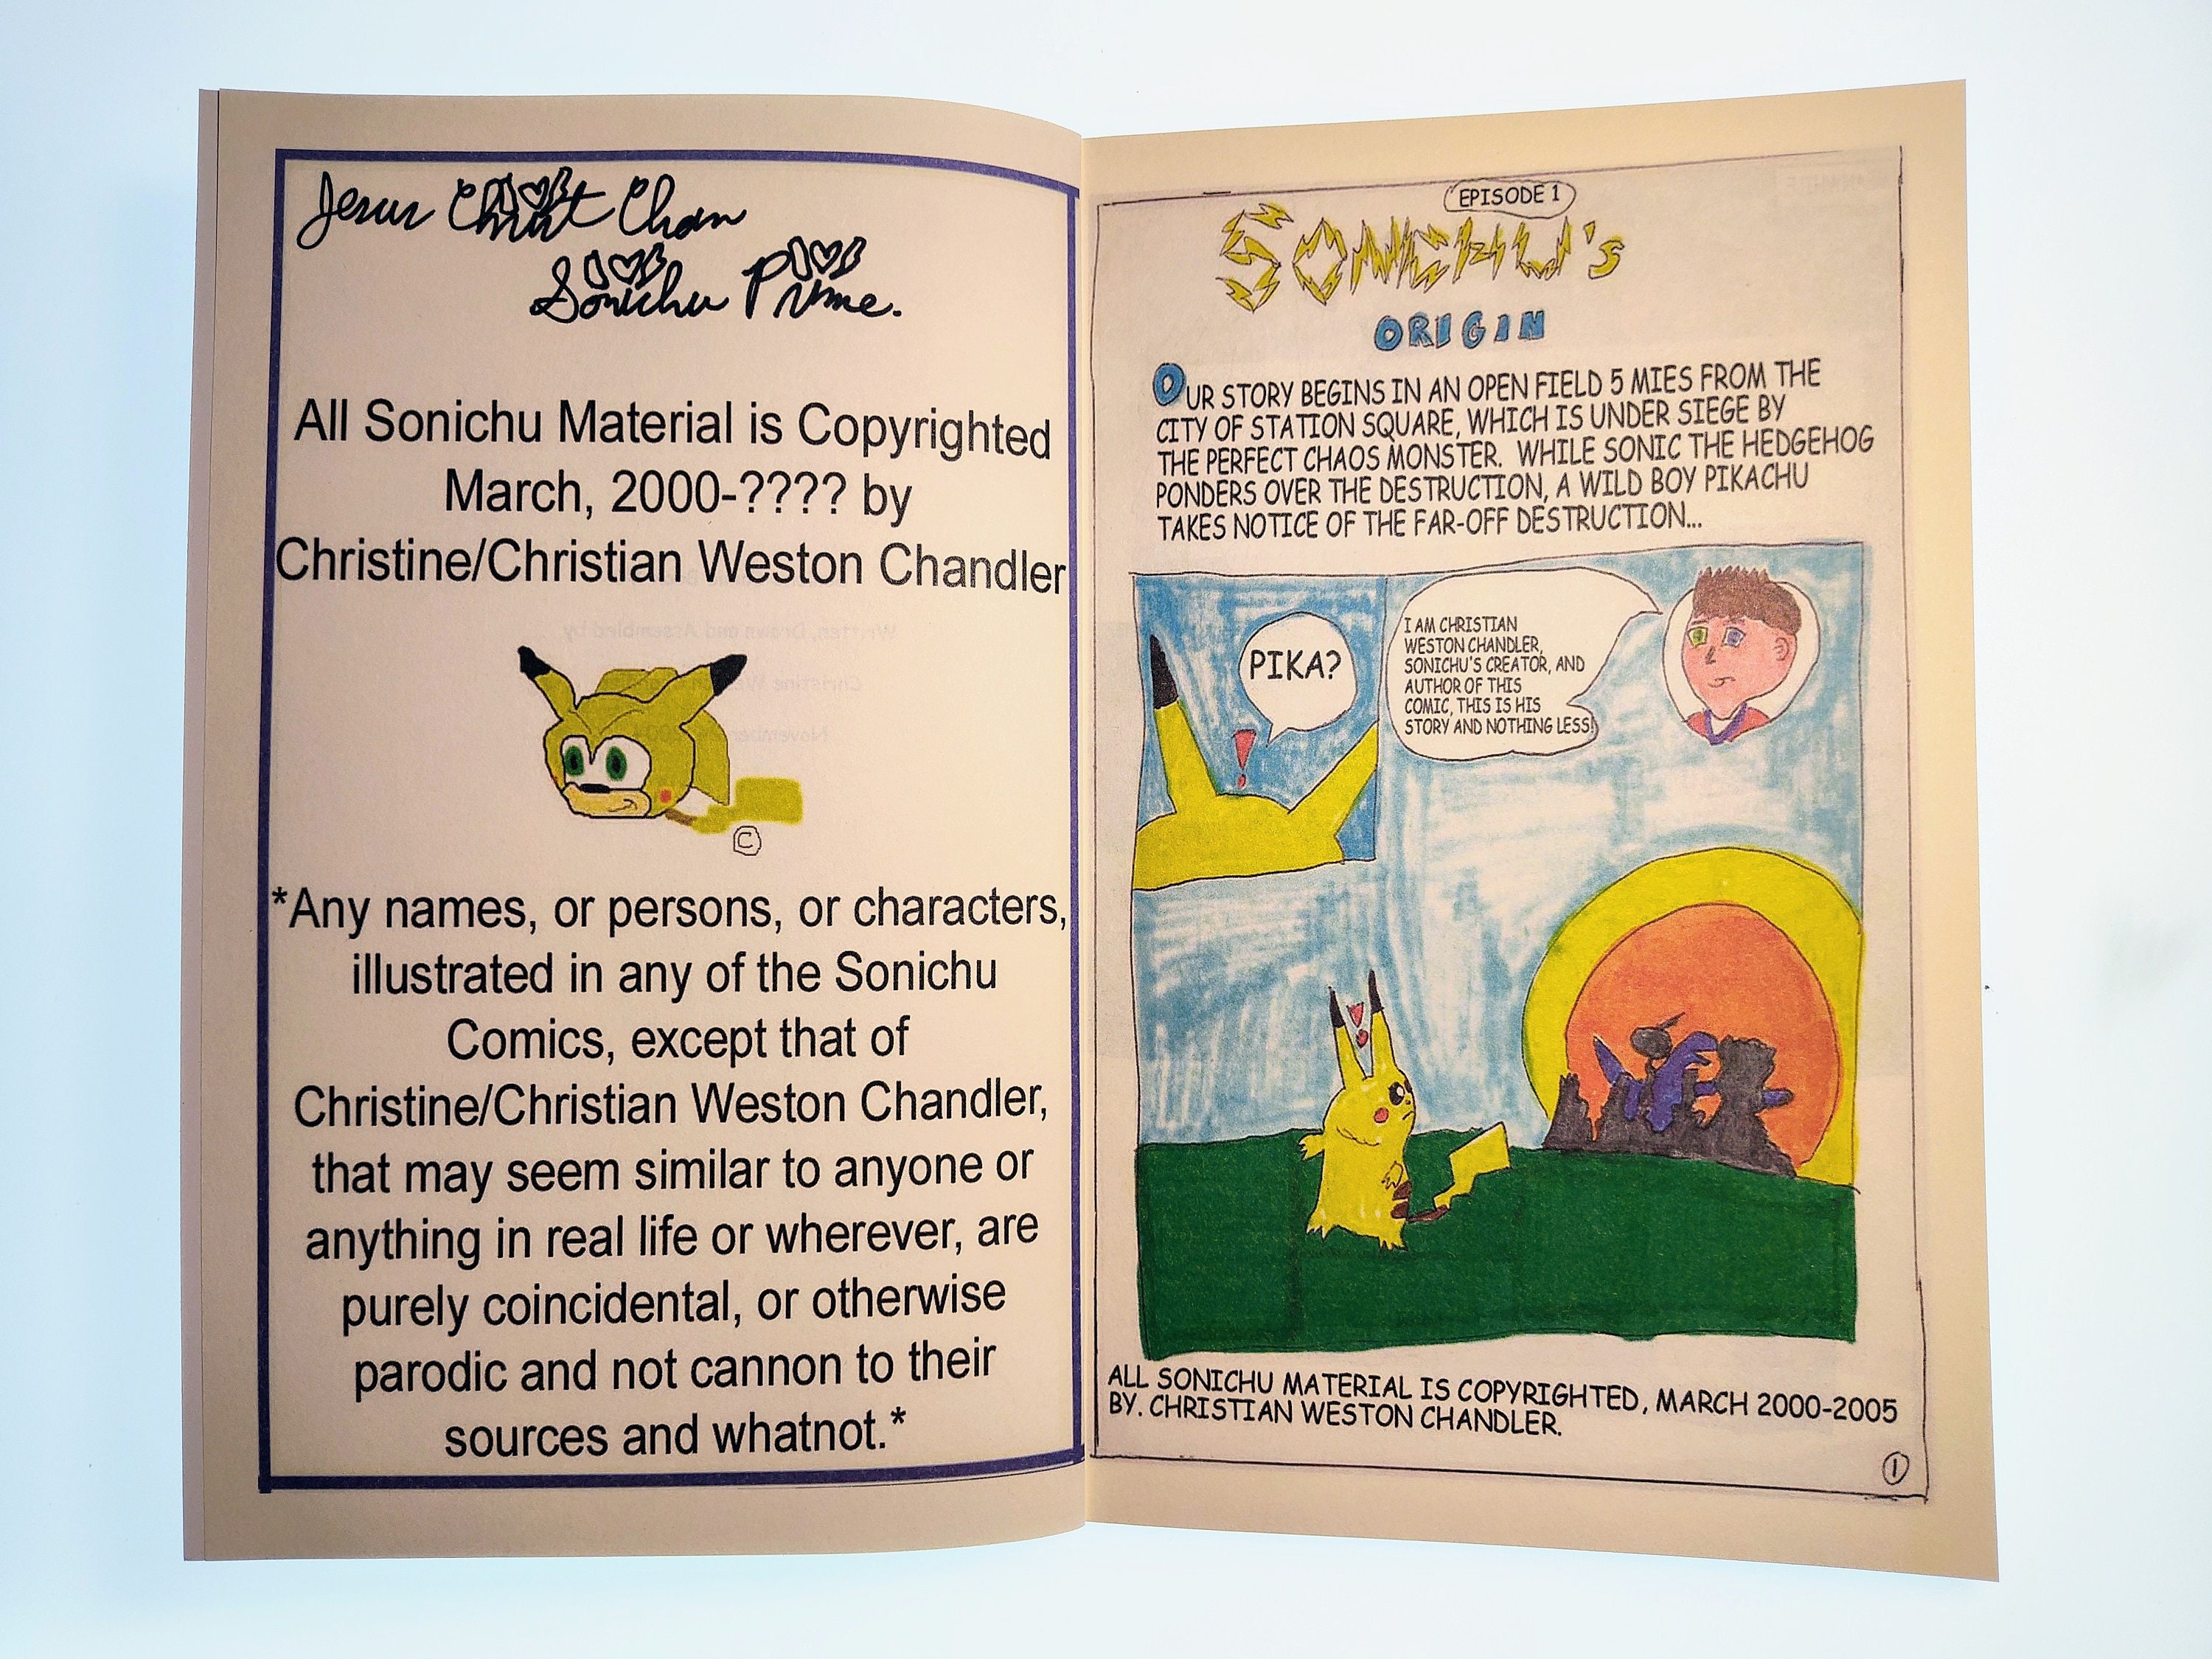 Jesus Christ Chan
Sonichu Prime.
All Sonichu Material is Copyrighted
March, 2000-???? by
Christine/Christian Weston Chandler
©
*Any names, or persons, or characters,
illustrated in any of the Sonichu
Comics, except that of
Christine/Christian Weston Chandler,
that may seem similar to anyone or
anything in real life or wherever, are
purely coincidental, or otherwise
parodic and not cannon to their
sources and whatnot.*
EPISODE 1
SONICHU's
ORIGIN
OUR STORY BEGINS IN AN OPEN FIELD 5 MIES FROM THE
CITY OF STATION SQUARE, WHICH IS UNDER SIEGE BY
THE PERFECT CHAOS MONSTER. WHILE SONIC THE HEDGEHOG
PONDERS OVER THE DESTRUCTION, A WILD BOY PIKACHU
TAKES NOTICE OF THE FAR-OFF DESTRUCTION...
PIKA?
!
I AM CHRISTIAN
WESTON CHANDLER,
SONICHU'S CREATOR, AND
AUTHOR OF THIS
COMIC, THIS IS HIS
STORY AND NOTHING LESS!
!
ALL SONICHU MATERIAL IS COPYRIGHTED, MARCH 2000-2005
BY. CHRISTIAN WESTON CHANDLER.
1